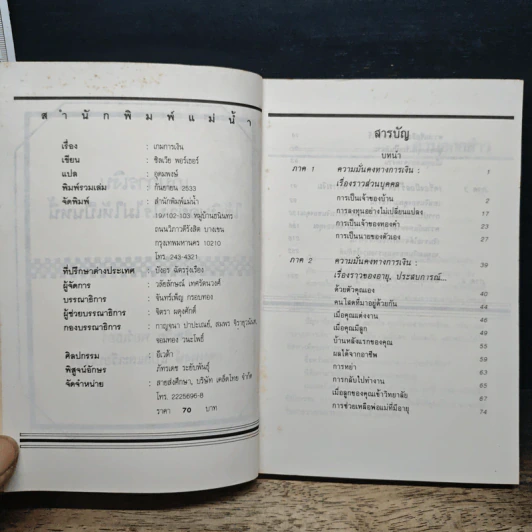 สำนักพิมพ์แม่น้ำ
เรื่อง : เกมการเงิน
เขียน : ซิลเวีย พอร์เธอร์
แปล : อุดมพงษ์
พิมพ์รวมเล่ม : กันยายน 2533
จัดพิมพ์ : สำนักพิมพ์แม่น้ำ
19/102-103 หมู่บ้านธนินทร
ถนนวิภาวดีรังสิต บางเขน
กรุงเทพมหานคร 10210
โทร. 243-4321
ที่ปรึกษาต่างประเทศ : ยังยร ฉัตรรุ่งเรือง
ผู้จัดการ : วลัยลักษณ์ เทศรัตนวงศ์
บรรณาธิการ : จันทร์เพ็ญ กรอบทอง
ผู้ช่วยบรรณาธิการ : จิตรา ผดุงศักดิ์
กองบรรณาธิการ : กาญจนา
จอมทอง วนะโพธิ์
ศิลปกรรม : อีเวต้า
พิสูจน์อักษร : ภัทรเดช ระยับพันธุ์
จัดจำหน่าย : สายส่งศึกษา, บริษัท เคล็ดไทย จำกัด
โทร. 2225696-8
ราคา 70 บาท
สารบัญ
บทนำ
ภาค 1 ความมั่นคงทางการเงิน : 1
เรื่องราวส่วนบุคคล
การเป็นเจ้าของบ้าน 2
การลงทุนอย่างไม่เปลี่ยนแปลง 17
การเป็นเจ้าของทองคำ 23
การเป็นนายของตัวเอง 27
ภาค 2 ความมั่นคงทางการเงิน : 39
เรื่องราวของอายุ, ประสบการณ์...
ด้วยตัวคุณเอง 40
คนโสดที่มาอยู่ด้วยกัน 44
เมื่อคุณแต่งงาน
เมื่อคุณมีลูก
บ้านหลังแรกของคุณ
ผลได้จากอาชีพ
การหย่า 63
การกลับไปทำงาน 65
เมื่อลูกของคุณเข้าวิทยาลัย 67
การช่วยเหลือพ่อแม่ที่มีอายุ 74